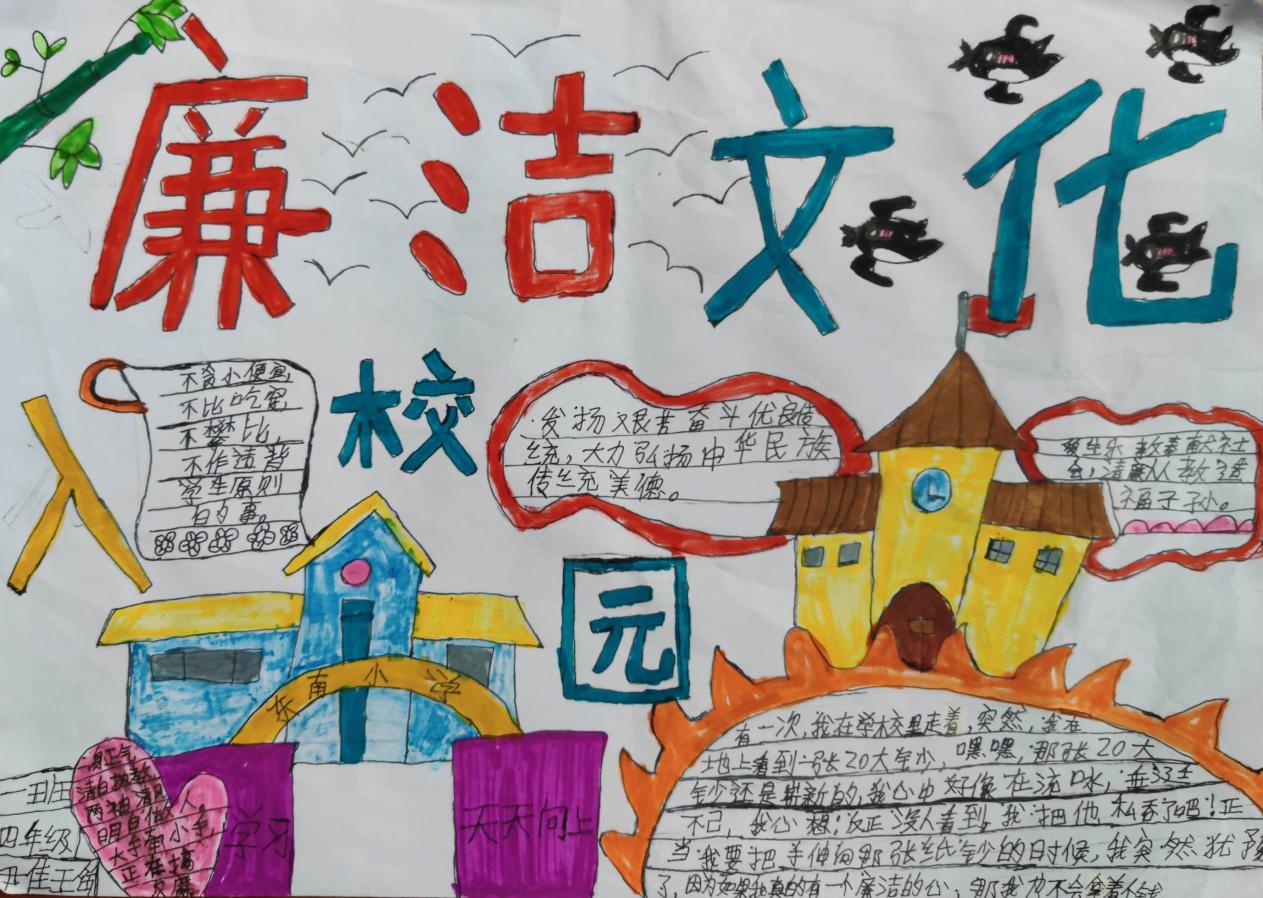 廉洁文化
入校园
不贪小便宜,
不比吃穿
不攀比,
不作违背
学生原则
的事。
发扬艰苦奋斗优良传
统,大力弘扬中华民族
传统美德。
爱生乐教奉献社
会,清廉从教造
福子孙。
东南小学
学习
天天向上
身正气
清白
两袖清风
大手牵小手
正在搞
一班
四年级
有一次,我在学校里走着,突然,我在
地上看到一张20大钞,嘿嘿,那张20大
钞还是崭新的,我心中好像在流口水,垂涎
不已,我心想:反正没人看到,我把他私吞了吧!正
当我要把手伸向那张纸钞的时候,我突然犹豫
了,因为如果我真的有一个廉洁的心,那我